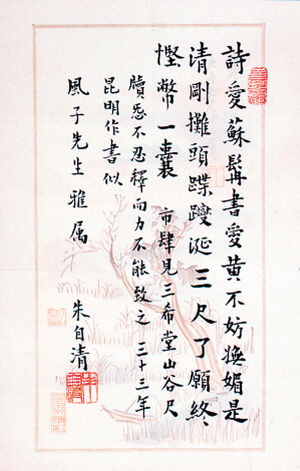 詩愛蘇髯書愛黃不妨嫵媚是
清剛攤頭蹀躞涎三尺了願終
慳幣一囊 市肆見三希堂山谷尺
牘愛不忍釋而力不能致之 三十三年
昆明作書似
風子先生雅屬
朱自清